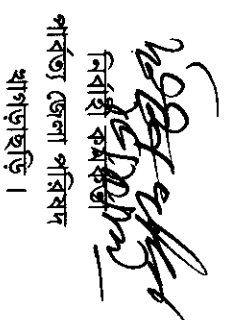 নির্বাহী কর্মকর্তা
পার্বত্য জেলা পরিষদ
খাগড়াছড়ি ।